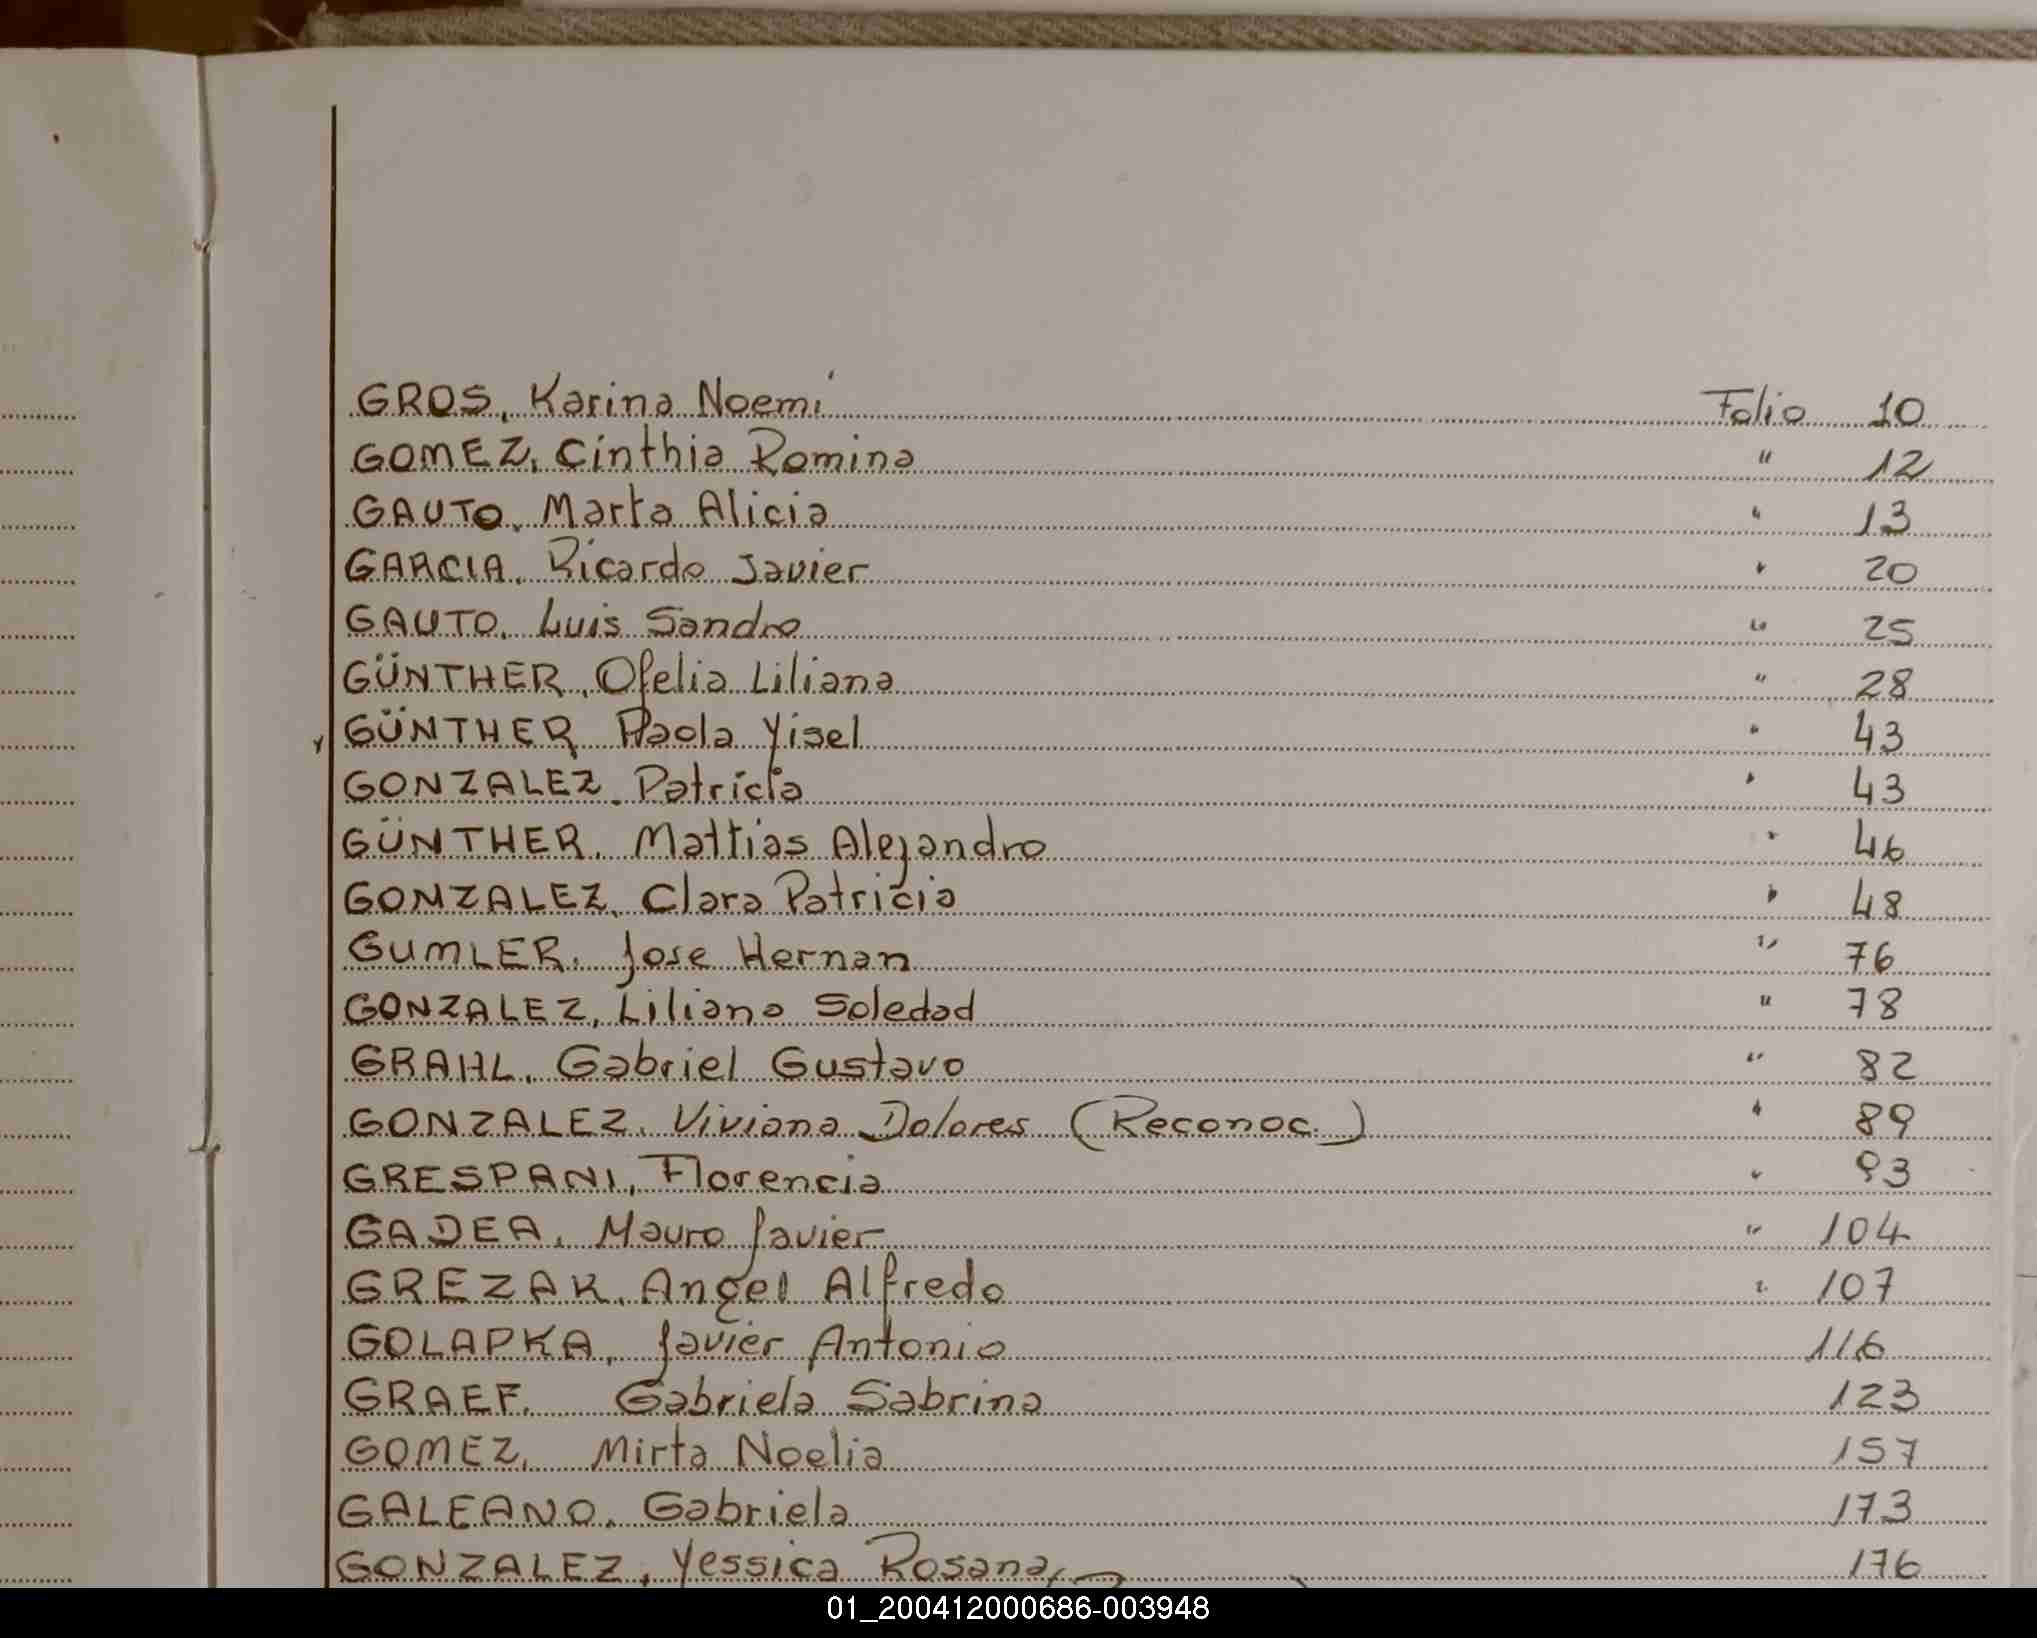 GROS, Karina Noemí Folio 10
GOMEZ, Cinthia Romina " 12
GAUTO, Marta Alicia " 13
GARCIA, Ricardo Javier " 20
GAUTO, Luis Sandro " 25
GÜNTHER, Ofelia Liliana " 28
GÜNTHER, Paola Yisel " 43
GONZALEZ, Patricia " 43
GÜNTHER, Mattias Alejandro " 46
GONZALEZ, Clara Patricia " 48
GUMLER, Jose Hernan " 76
GONZALEZ, Liliana Soledad " 78
GRAHL, Gabriel Gustavo " 82
GONZALEZ, Viviana Dolores (Reconoc.) " 89
GRESPANI, Florencia " 93
GADEA, Mauro Javier " 104
GREZAK, Angel Alfredo " 107
GOLAPKA, Javier Antonio 116
GRAEF, Gabriela Sabrina 123
GOMEZ, Mirta Noelia 157
GALEANO, Gabriela 173
GONZALEZ, Yessica Rosana 176
01_200412000686-003948